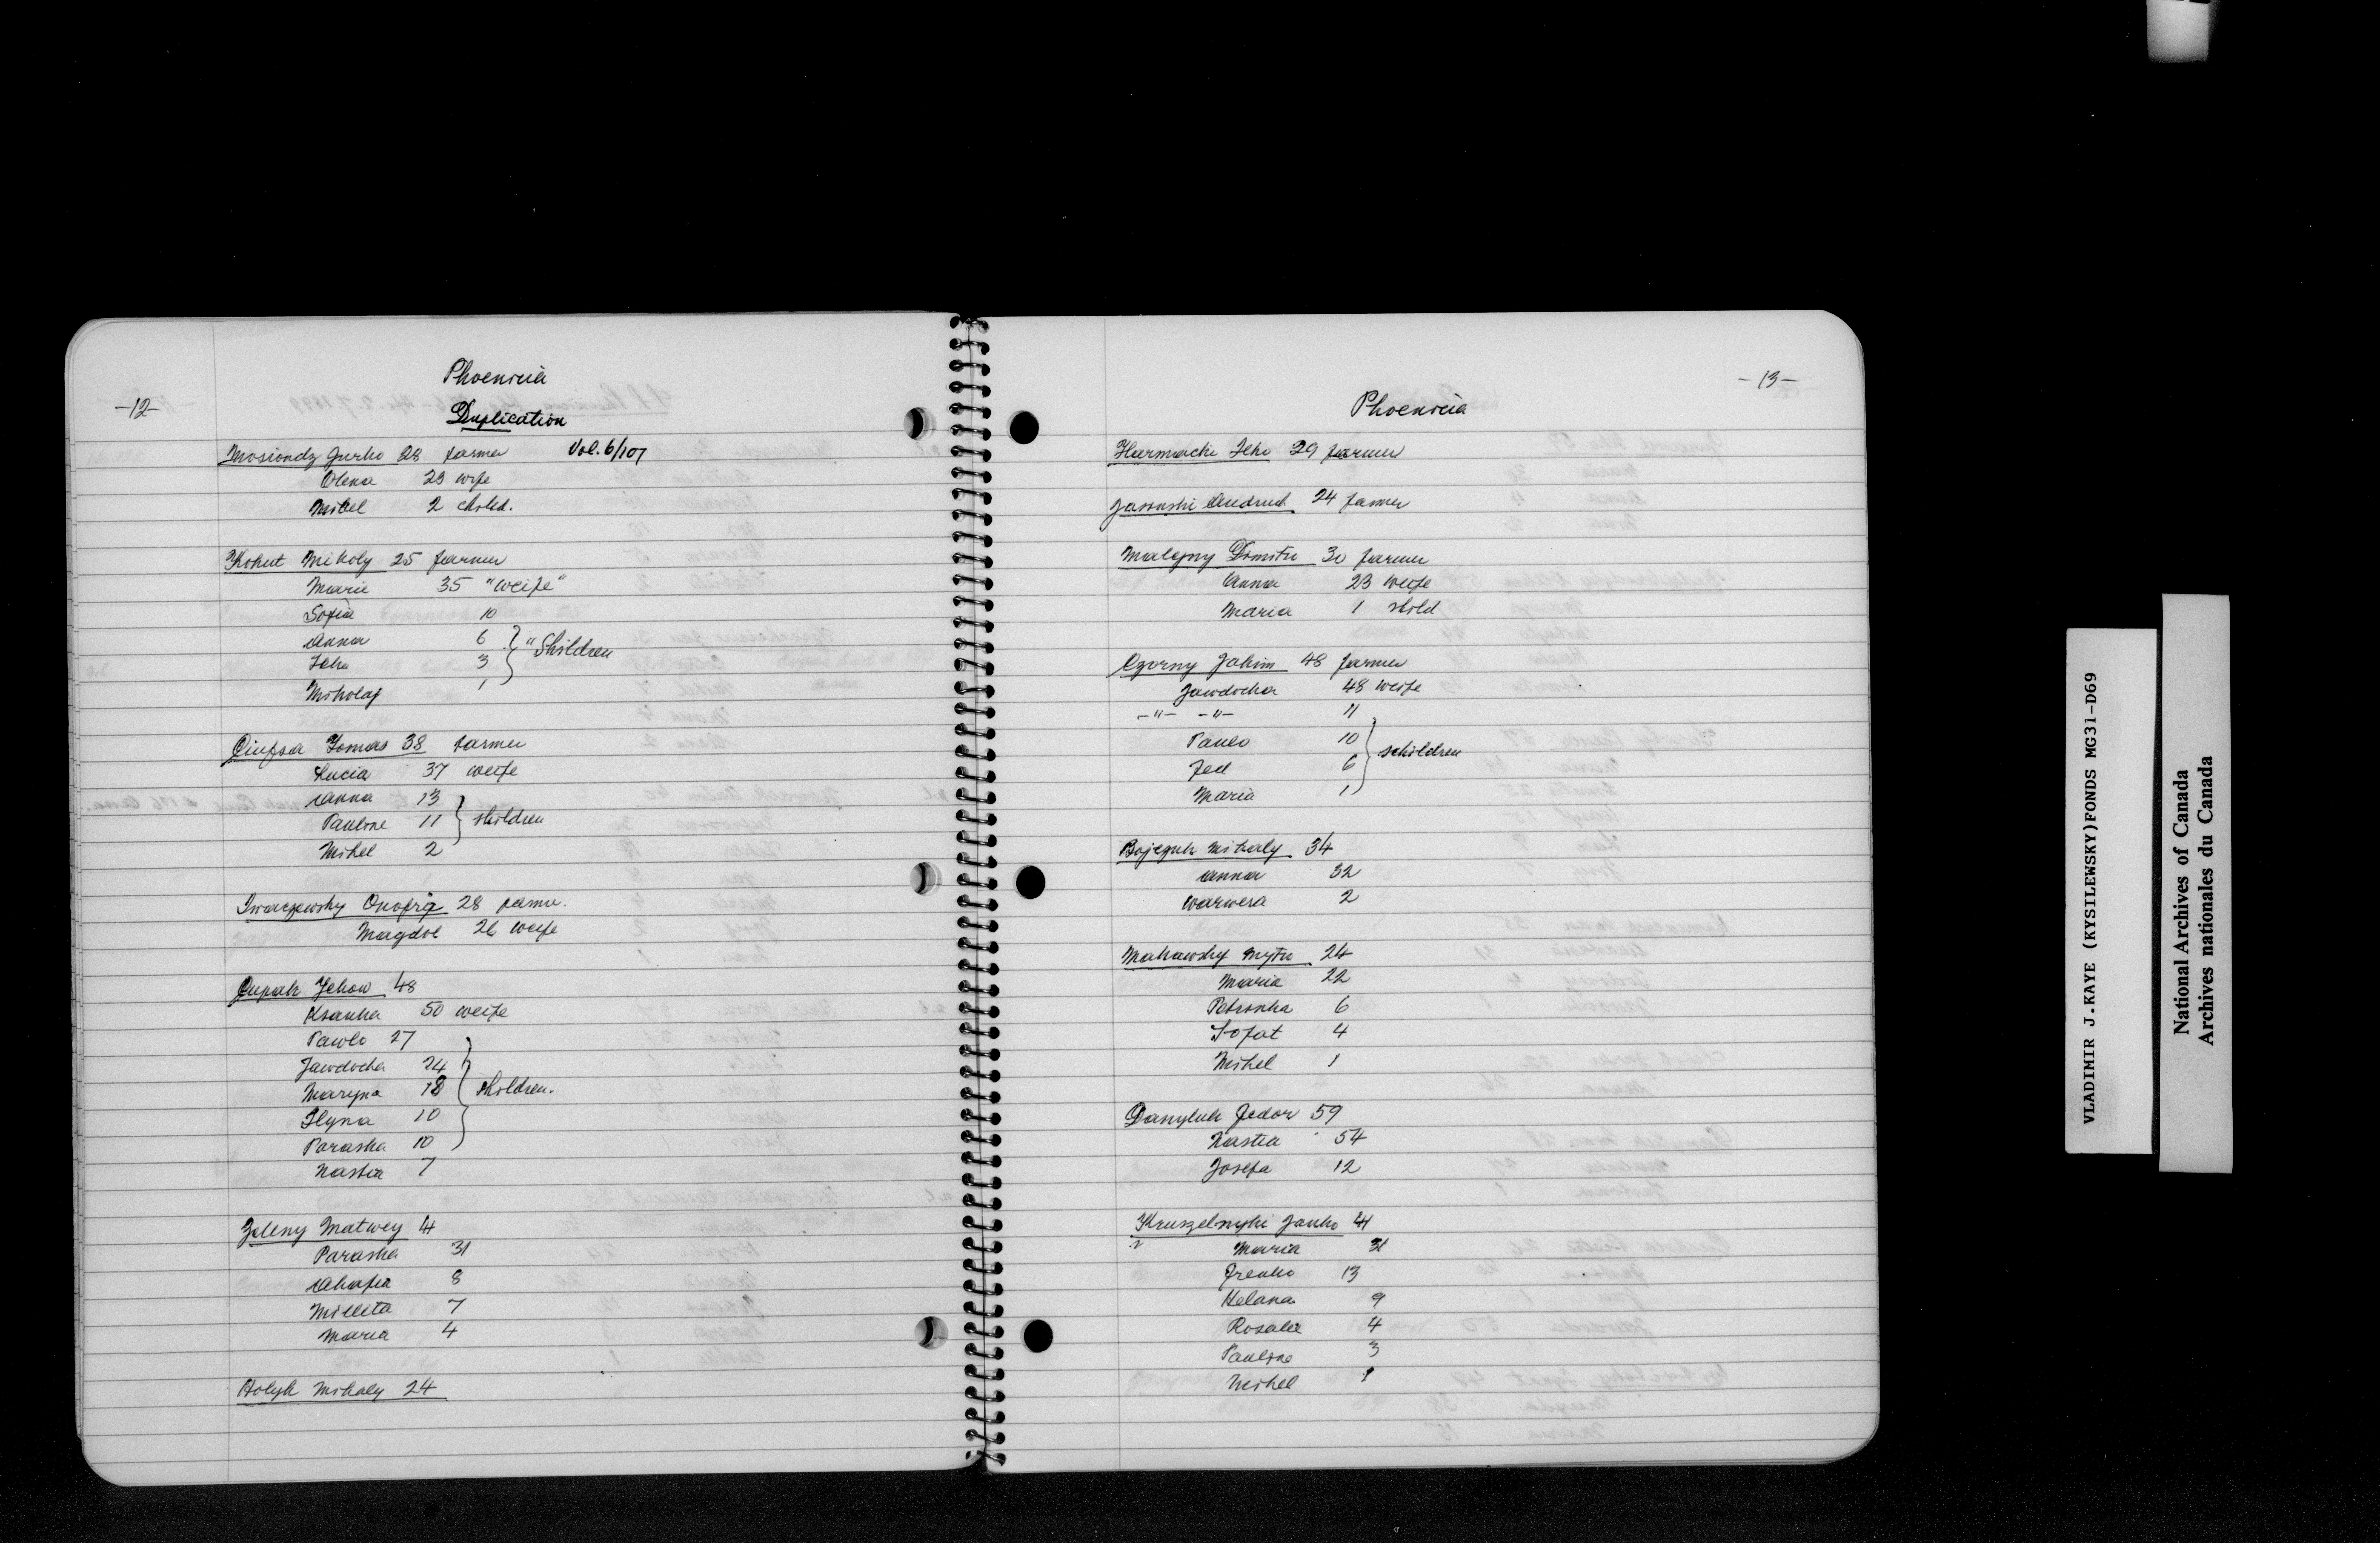 -12-
Phoenicia
Duplication
Mosiondz Jurko 28 farmer Vol. 6/107
Olena 23 wife
Mikel 2 child.
Kohut Mikoly 25 farmer
Marie 35 "weife"
Sofia 10
Anna 6
Ilko 3 "Shildren
Mikolaj 1
Ciupsa Tomas 38 farmer
Lucia 37 weife
Anna 13
Pauline 11 shildren
Mikel 2
Iwarczewsky Onofrij 28 farmer.
Magdol 26 weife
Cupak Jehow 48
Ksanka 50 weife
Pawlo 27
Jawdocha 24
Maryna 18 shildren.
Ilyna 10
Paraska 10
Nastia 7
Zeleny Matwey 41
Paraska 31
Ahafia 8
Mikita 7
Maria 4
Holyk Mikaly 24
-13-
Phoenicia
Harmacki Ilko 29 farmer
Andruch 24 farmer
Dimitri 30 farmer
Anna 23 weife
Maria 1 shild
Czorny Jakim 48 farmer
Jawdocha 48 weife
-"- -"- 11
Pawlo 10 schildren
Fed 6
Maria 1
Bojczuk Mikaly 34
Anna 32
Warwera 2
Makawsky Mytro 24
Maria 22
Petronka 6
4
Mikel 1
Danyluk Fedor 59
Nastia 54
Josefa 12
Kruszelnyki Janko 41
Maria 31
Frenko 13
Helana 9
Rosalie 4
Pauline 3
Mikel 1
VLADIMIR J.KAYE (KYSILEWSKY)FONDS MG31-D69
National Archives of Canada
Archives nationales du Canada